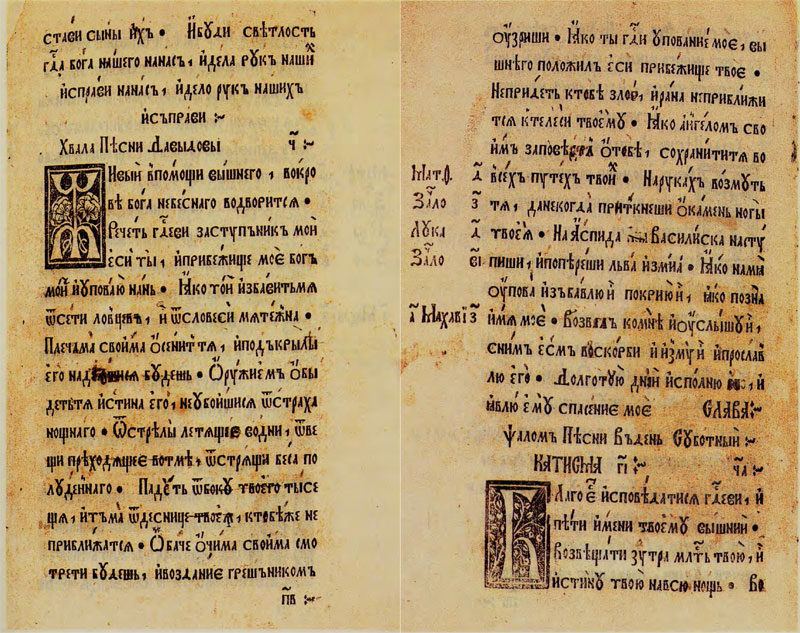 стави сыны ихъ • И буди свѣтлость
гда бога нашего нанасъ, идела рукъ наши
исправи нанасъ, идело рукъ нашихъ
исъправи :~
Хвала Пѣсни Давыдовы ч҃ :~
Живый впомощи вышнего, вокро
вѣ бога небеснаго водворится •
Речеть гдеви заступъникъ мой
еси ты, иприбежище мое богъ
мой иуповаю нань • Iако той избавитьмя
ѿсети ловцевъ, и ѿсловеси мятежна •
Плечама своима осенить тя, иподъкрылы
его надѣяися будешь • Оружиемъ обы
детьтя истина его, неубоишися ѿстраха
нощнаго • Ѿстрѣлы летящее водни, ѿве
щи преходящее вотмѣ, ѿстрящи беса по
луденнаго • Падеть ѿбоку твоего тысе
ща, итъма ѿдеснице твоея, ктобѣже не
приближатся • Обаче очима своима смо
трети будешь, ивоздание грешъникомъ
п҃в :~
оузриши • Iако ты гди упование мое, вы
шнѣго положилъ еси прибежище твое •
Непридеть ктобѣ злое, ирана неприближи
тся ктелеси твоему • Iако ангеломъ сво
имъ заповѣсть отобѣ, сохранититя во
Матф. д҃ всехъ путехъ твои • Нарукахъ возмуть
Зало з҃ тя, данекогда приткнеши окамень ногы
Лука д҃ твоея • На Аспида Василиска насту
Зало еі҃ пиши, ипопѣреши льва измиа • Iако намя
оупова избавлю и покрию и, iако позна
г҃ Махаві з҃ имя мое • Возвалъ комнѣ иоуслышу и,
сним есмъ воскорби и изму и ипрослав
лю его • Долготую дний исполню, и
iавлю ему спасение мое Слава :~
Ѱаломъ Пѣсни Въдень Суботный :~
Катисма гі҃ :~ ча҃ :~
Благо е исповѣдатися гдеви, и
пѣти имени твоему вышний •
Возвѣщати зутра млть твою, и
истину твою навсю нощь • Во